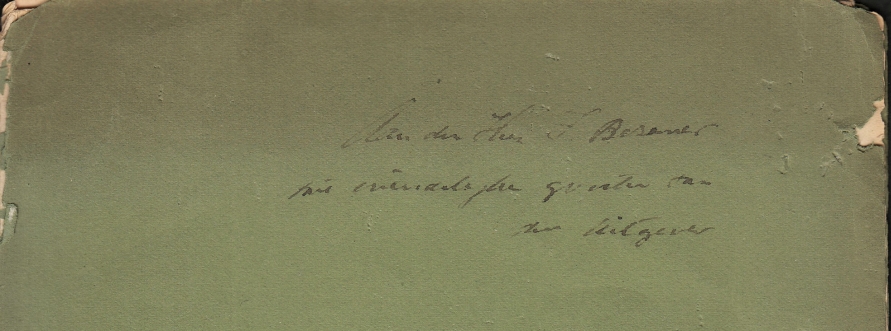 Aan den Heer F Bezemer
met vriendelijke groeten van
den Uitgever